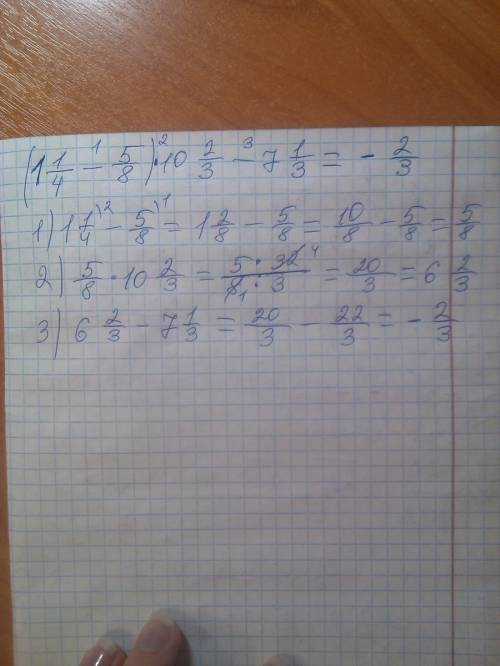 (1 1/4 - 5/8) · 10 2/3 - 7 1/3 = - 2/3
1) 1 1/4 - 5/8 = 1 2/8 - 5/8 = 10/8 - 5/8 = 5/8
2) 5/8 · 10 2/3 = 5 · 32/8 · 3 = 20/3 = 6 2/3
3) 6 2/3 - 7 1/3 = 20/3 - 22/3 = - 2/3